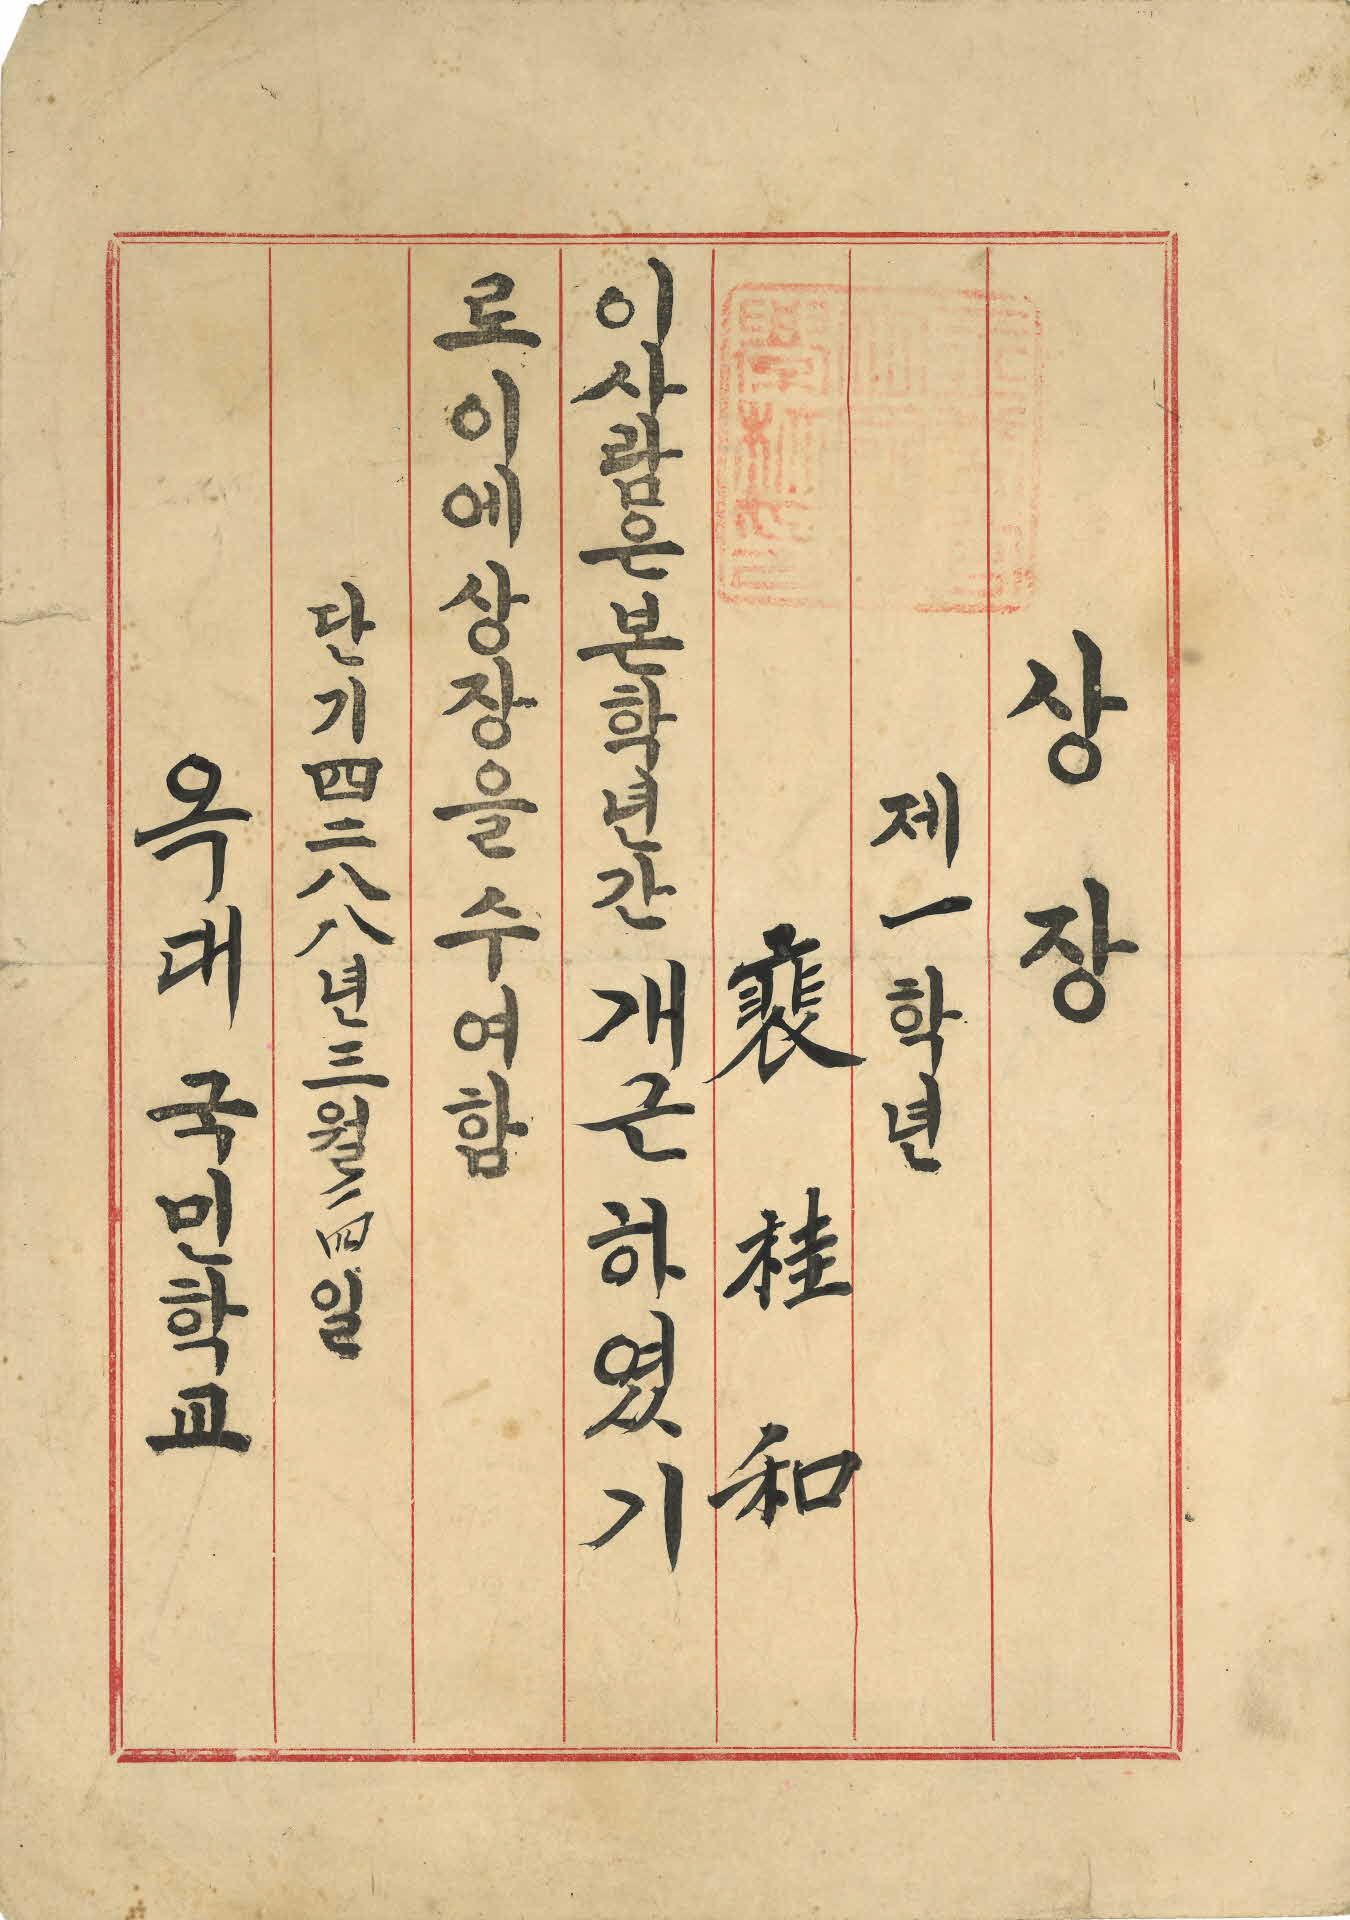 상장
제一학년
裵桂和
이사람은본학년간개근하였기
로이에상장을수여함
단기四二八八년三월二四일
옥대국민학교